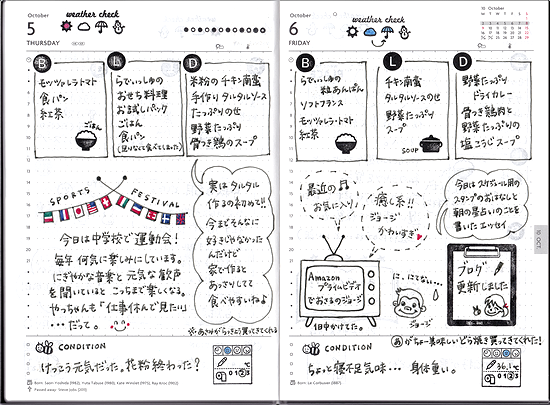 October
5
THURSDAY
weather check
B
モッツァレラ・トマト
食パン
紅茶
ごはん
L
らでぃっしゅの
おせち料理
お試しパック
ごはん
食パン
D
米粉の チキン南蛮
手作り タルタルソース
たっぷりのせ
野菜 たっぷり
骨つき鶏のスープ
SPORTS
FESTIVAL
今日は中学校で運動会!
毎年 何気に楽しみにしています。
にぎやかな音楽と 元気な歓声
を聞いていると こっちまで楽しくなる。
やっちゃんも「仕事休んで見たい」
…だって。
実は タルタル
作るの初めて!!
今までそんなに
好きじゃなかった
んだけど
家で作ると
あっさりしてて
食べやすいわよ
CONDITION
けっこう元気だった。花粉終わった?
October
6
FRIDAY
weather check
10 October
B
らでぃっしゅの
粒あんぱん
ソフトフランス
モッツァレラ・トマト
紅茶
L
チキン南蛮
タルタルソースのせ
野菜たっぷり
スープ
SOUP
D
野菜たっぷり
ドライカレー
骨つき鶏肉と
野菜たっぷりの
塩こうじスープ
最近の
お気に入り
癒し系!!
ジョージ
かわいすぎ
Amazon
プライムビデオ
でおさるのジョージ
1日中かけてた。
に、にてない…
ジョージ
今日は スケジュール用の
スタンプのおはなしと
朝の星占いのことを
書いた エッセイ
ブログ
更新しました
10 OCT
CONDITION
ちょっと寝不足気味… 身体重い。
36.1℃
Born: Le Corbusier (1887)